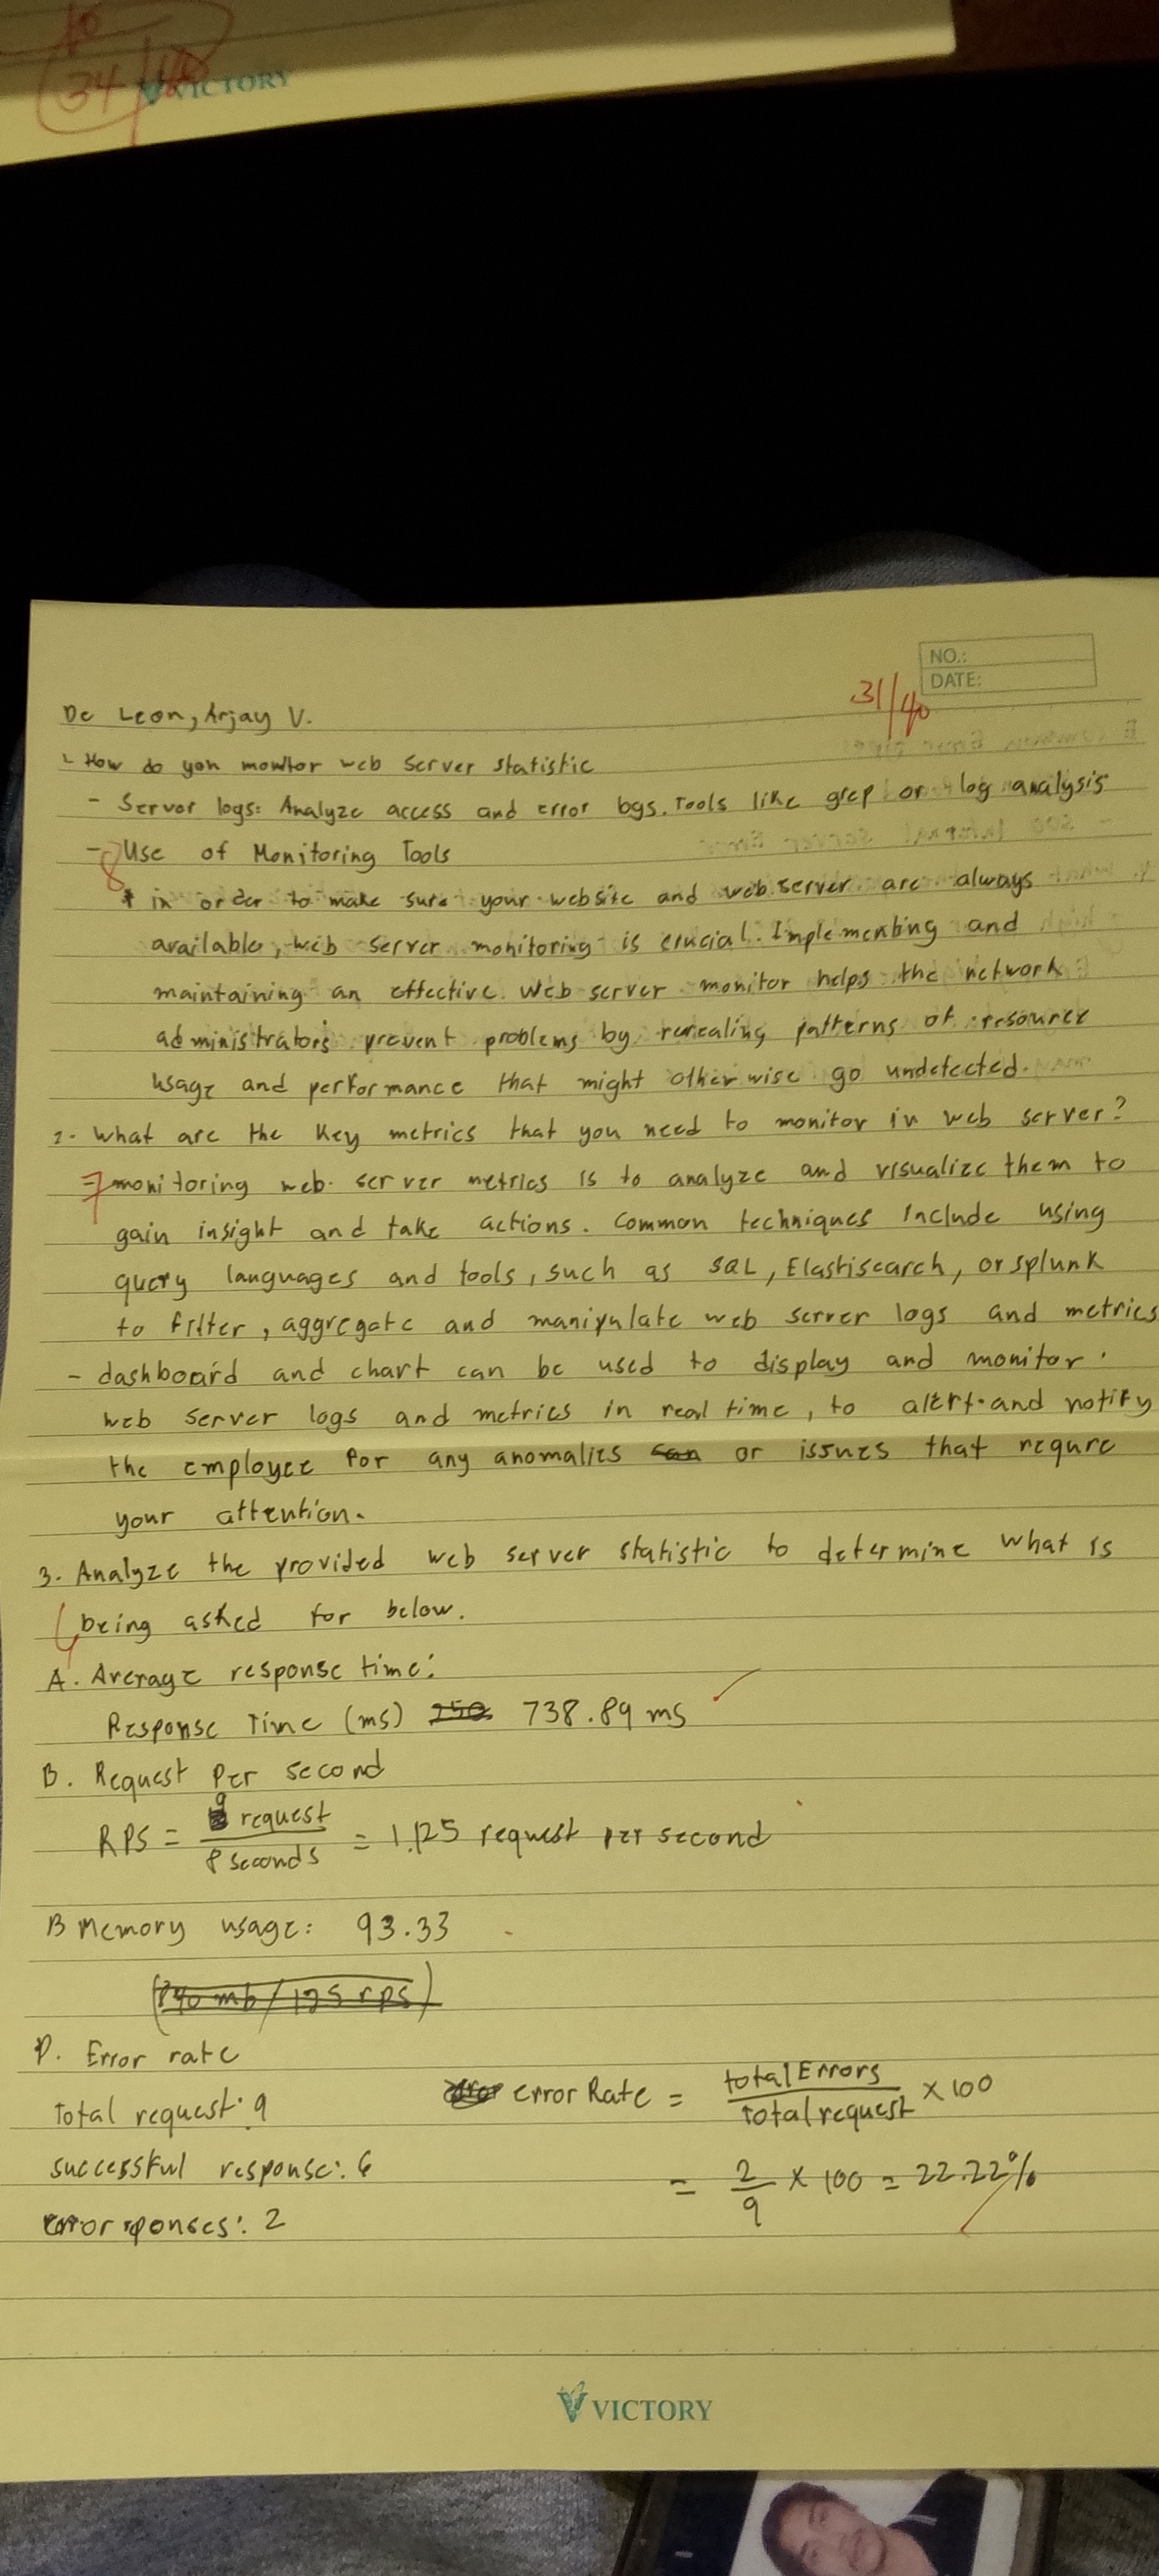 34
VICTORY
NO.:
DATE:
31/40
De Leon, Arjay V.
1. How do you monitor web server statistic
- Server logs: Analyze access and error logs. Tools like grep or log analysis
8
- Use of Monitoring Tools
* in order to make sure your website and web server are always
available, web server monitoring is crucial. Implementing and
maintaining an effective web server monitor helps the network
administrators prevent problems by revealing patterns of resource
usage and performance that might otherwise go undetected.
2. What are the Key metrics that you need to monitor in web server?
7
monitoring web server metrics is to analyze and visualize them to
gain insight and take actions. Common techniques include using
query languages and tools, such as SQL, Elastisearch, or splunk
to filter, aggregate and manipulate web server logs and metrics
- dashboard and chart can be used to display and monitor
web server logs and metrics in real time, to alert and notify
the employee for any anomalies or issues that requre
your attention.
3. Analyze the provided web server statistic to determine what is
being asked for below.
A. Average response time:
Response Time (ms) 738.89 ms
B. Request Per second
RPS = 9 request / 8 seconds = 1.125 request per second
B Memory usage: 93.33
(840 mb / 125 rps)
D. Error rate
Total request: 9
error Rate = total Errors / Total request × 100
successful response: 6
= 2/9 × 100 = 22.22%
error rponses: 2
VICTORY